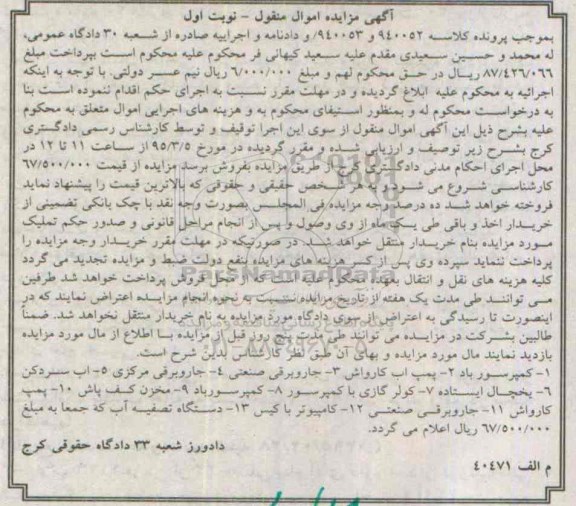 آگهی مزایده اموال منقول - نوبت اول
بموجب پرونده کلاسه ۹۴۰۰۵۲ و ۹۴۰۰۵۳/ و دادنامه و اجراییه صادره از شعبه ۳۰ دادگاه عمومی،
له محمد و حسین سعیدی مقدم علیه سعید کیهانی فر محکوم علیه محکوم است بپرداخت مبلغ
۸۷/۴۲۶/۰۶۶ ریال در حق محکوم لهم و مبلغ ۶/۰۰۰/۰۰۰ ریال نیم عسر دولتی. با توجه به اینکه
اجرائیه به محکوم علیه ابلاغ گردیده و در مهلت مقرر نسبت به اجرای حکم اقدام ننموده است بنا
به درخواست محکوم له و بمنظور استیفای محکوم به و هزینه های اجرایی اموال متعلق به محکوم
علیه بشرح ذیل این آگهی اموال منقول از سوی این اجرا توقیف و توسط کارشناس رسمی دادگستری
کرج بشرح زیر توصیف و ارزیابی شده و مقرر گردیده در مورخ ۹۵/۳/۵ از ساعت ۱۱ تا ۱۲ در
محل اجرای احکام مدنی دادگستری کرج از طریق مزایده بفروش برسد مزایده از قیمت ۶۷/۵۰۰/۰۰۰
کارشناسی شروع می شود و به هر شخص حقیقی و حقوقی که بالاترین قیمت را پیشنهاد نماید
فروخته خواهد شد ده درصد وجه مزایده فی المجلس بصورت وجه نقد یا چک بانکی تضمینی از
خریدار اخذ و باقی طی یک ماه از وی وصول و پس از انجام مراحل قانونی و صدور حکم تملیک
مورد مزایده بنام خریدار منتقل خواهد شد. در صورتیکه در مهلت مقرر خریدار وجه مزایده را
پرداخت ننماید سپرده وی پس از کسر هزینه های مزایده بنفع دولت ضبط و مزایده تجدید می گردد
کلیه هزینه های نقل و انتقال بعهده محکوم علیه است که از محل فروش پرداخت خواهد شد طرفین
می توانند طی مدت یک هفته از تاریخ مزایده نسبت به نحوه انجام مزایده اعتراض نمایند که در
اینصورت تا رسیدگی به اعتراض از سوی دادگاه مورد مزایده به نام خریدار منتقل نخواهد شد. ضمناً
طالبین بشرکت در مزایده می توانند طی مدت پنج روز قبل از مزایده با اطلاع از مال مورد مزایده
بازدید نمایند مال مورد مزایده و بهای آن طبق نظر کارشناس بدین شرح است.
۱- کمپرسور باد ۲- پمپ اب کارواش ۳- جاروبرقی صنعتی ۴- جاروبرقی مرکزی ۵- اب سردکن
۶- یخچال ایستاده ۷- کولر گازی با کمپرسور ۸- کمپرسورباد ۹- مخزن کف پاش ۱۰- پمپ
کارواش ۱۱- جاروبرقی صنعتی ۱۲- کامپیوتر با کیس ۱۳- دستگاه تصفیه آب که جمعا به مبلغ
۶۷/۵۰۰/۰۰۰ ریال اعلام می گردد.
دادورز شعبه ۳۳ دادگاه حقوقی کرج
م الف ۴۰۴۷۱
ParsNamadData